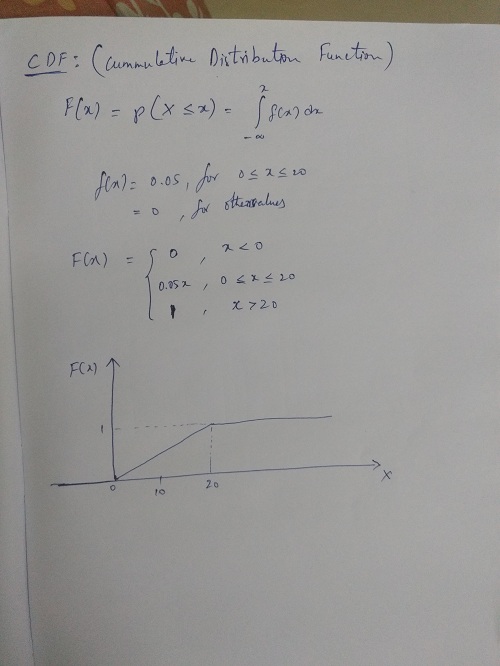 CDF: (Cummulative Distribution Function)
F(x) = p(X ≤ x) = ∫_{-∞}^{x} f(x) dx
f(x) = 0.05, for 0 ≤ x ≤ 20
= 0 , for other values
F(x) = { 0 , x < 0
0.05x , 0 ≤ x ≤ 20
1 , x > 20
F(x)
1
0 10 20 X